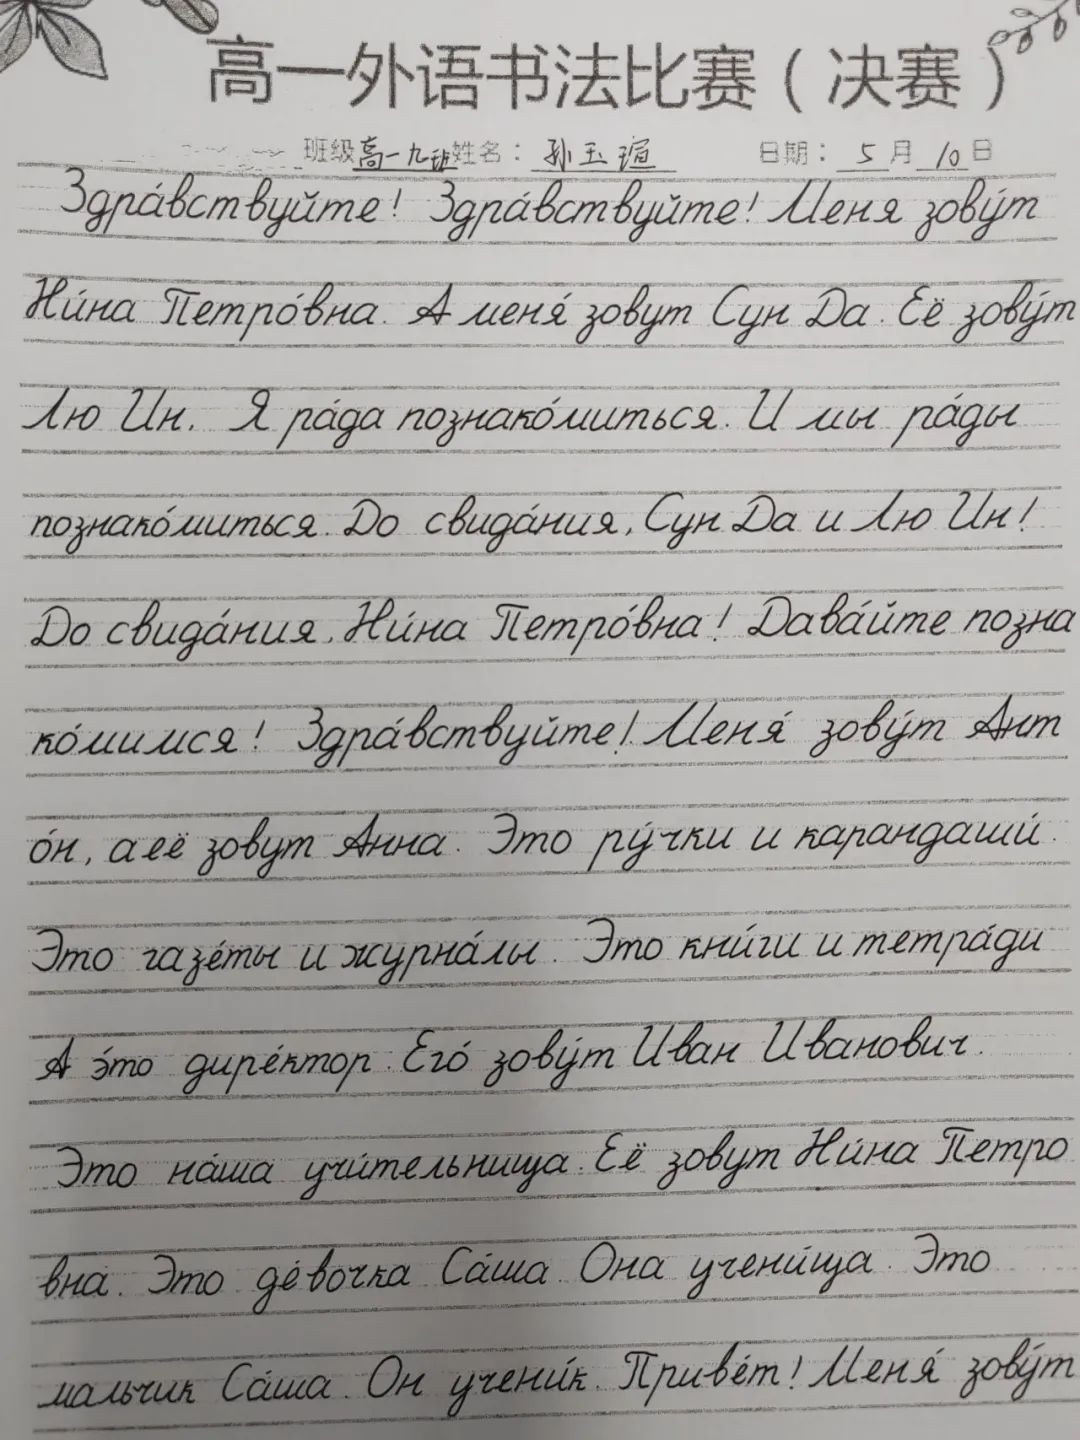 高一外语书法比赛（决赛）
班级高一九班姓名：孙玉瑄 日期：5月10日
Здра́вствуйте! Здра́вствуйте! Меня зову́т
Ни́на Петро́вна. А меня́ зовут Сун Да. Её зову́т
Лю Ин. Я ра́да познако́миться. И мы ра́ды
познако́миться. До свида́ния, Сун Да и Лю Ин!
До свида́ния, Ни́на Петро́вна! Дава́йте позна
ко́мимся! Здра́вствуйте! Меня́ зову́т Ант
о́н, а её зовут Анна. Это ру́чки и карандаши́.
Это газе́ты и журна́лы. Это кни́ги и тетра́ди
А э́то дире́ктор. Его́ зову́т Иван Иванович.
Это на́ша учи́тельница. Её зовут Ни́на Петро
вна. Это де́вочка Са́ша. Она учени́ца. Это
мальчик Са́ша. Он учени́к. Приве́т! Меня́ зову́т